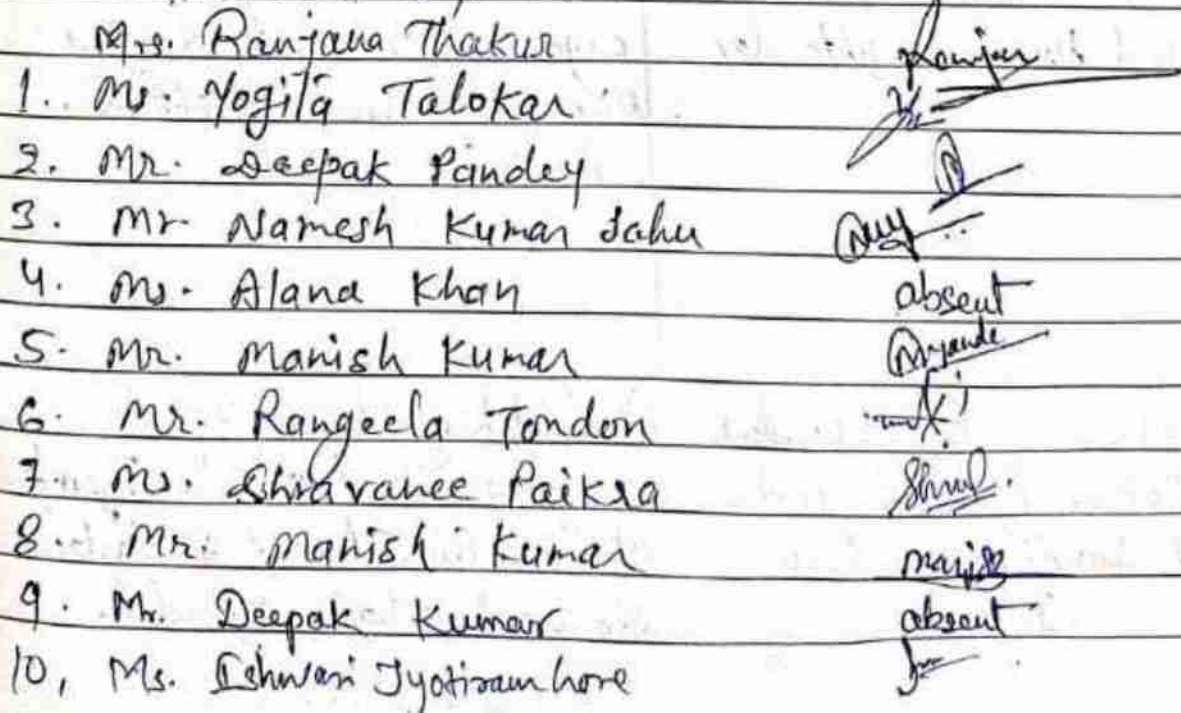 Mrs. Ranjana Thakur Ranjan
1. Ms. Yogita Talokar
2. Mr. Deepak Pandey
3. Mr. Namesh Kumar Sahu
4. Ms. Alana Khan absent
5. Mr. Manish Kumar
6. Mr. Rangeela Tondon
7. Ms. Shravanee Paikra
8. Mr. Manish Kumar
9. Mr. Deepak Kumar absent
10, Ms. Ishwari Jyotiram hore